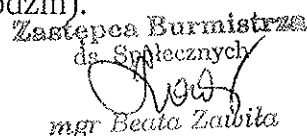 odzin).
Zastępca Burmistrza
ds. Społecznych
mgr Beata Zawiła